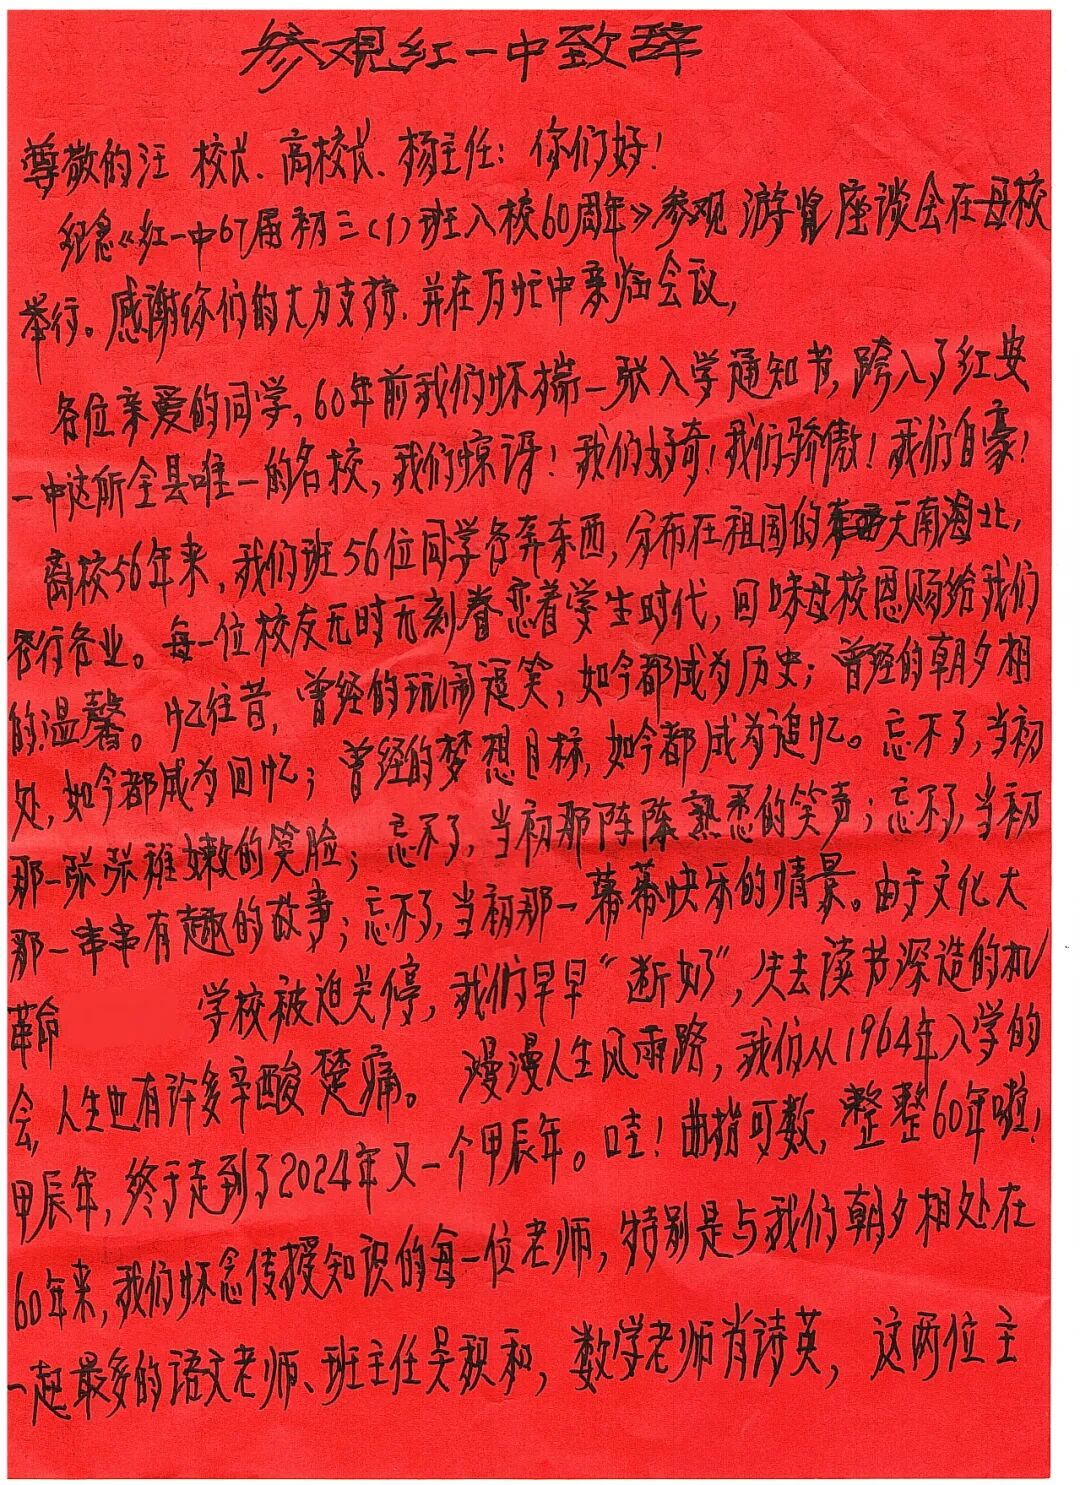 参观红一中致辞
尊敬的汪 校长、高校长、杨主任：你们好！
纪念《红一中67届初三(1)班入校60周年》参观游览座谈会在母校
举行。感谢你们的大力支持，并在万忙中亲临会议，
各位亲爱的同学，60年前我们怀揣一张入学通知书，跨入了红安
一中这所全县唯一的名校，我们惊讶！我们好奇！我们骄傲！我们自豪！
离校56年来，我们班56位同学各奔东西，分布在祖国的天南海北，
各行各业。每一位校友无时无刻眷恋着学生时代，回味母校恩赐给我们
的温馨。忆往昔，曾经的玩闹逗笑，如今都成为历史；曾经的朝夕相
处，如今都成为回忆；曾经的梦想目标，如今都成为追忆。忘不了，当初
那一张张稚嫩的笑脸；忘不了，当初那阵阵熟悉的笑声；忘不了，当初
那一串串有趣的故事；忘不了，当初那一幕幕快乐的情景。由于文化大
革命 学校被迫关停，我们早早“断奶”，失去读书深造的机
会，人生也有许多辛酸楚痛。漫漫人生风雨路，我们从1964年入学的
甲辰年，终于走到了2024年又一个甲辰年。哇！曲指可数，整整60年啦！
60年来，我们怀念传授知识的每一位老师，特别是与我们朝夕相处在
一起最多的语文老师、班主任吴和，数学老师肖诗英，这两位主